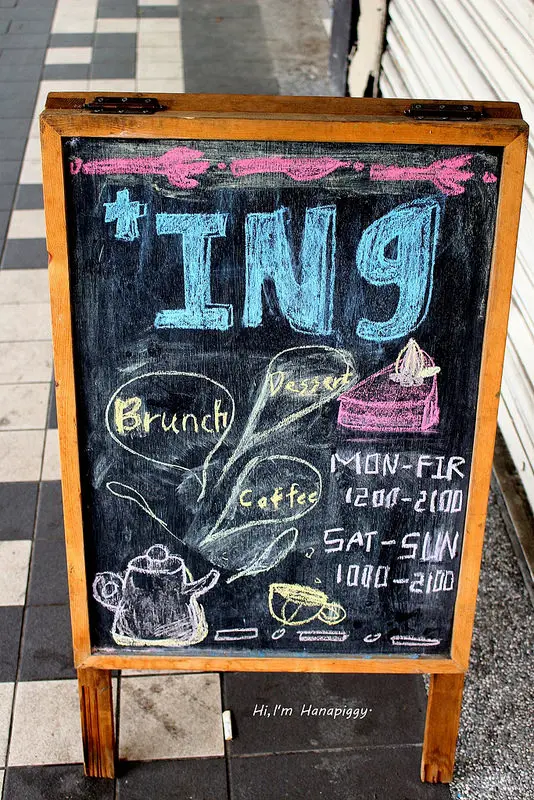 +ING
Dessert
Brunch
Coffee
MON-FIR
1200-2100
SAT-SUN
1000-2100
Hi, I'm Hanapiggy.